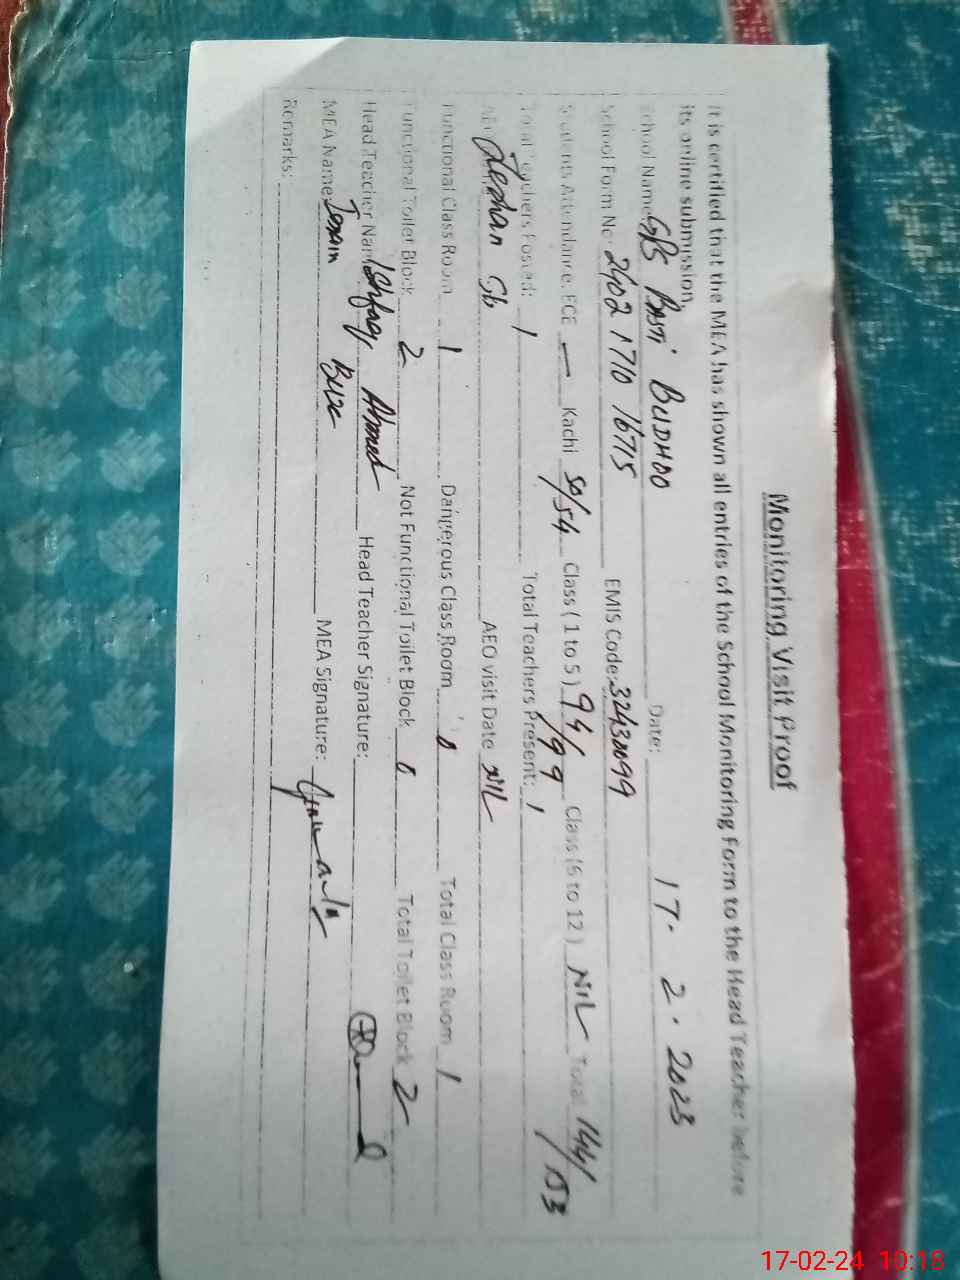 Monitoring Visit Proof
It is certified that the MEA has shown all entries of the School Monitoring Form to the Head Teacher before
its online submission.
School Name: GPS BASTI BUDHOO Date: 17.2.2023
School Form No: 2402 1710 16715 EMIS Code: 32430099
Students Attendance: ECE — Kachi 50/54 Class (1 to 5) 94/99 Class (6 to 12) NIL Total 144/153
Total Teachers Posted: 1 Total Teachers Present: 1
AEO Zeshan Gb AEO visit Date NIL
Functional Class Room 1 Dangerous Class Room 0 Total Class Room 1
Functional Toilet Block 2 Not Functional Toilet Block 0 Total Toilet Block 2
Head Teacher Name Ishfaq Ahmed Head Teacher Signature:
MEA Name: MEA Signature:
Remarks:
17-02-24 10:18